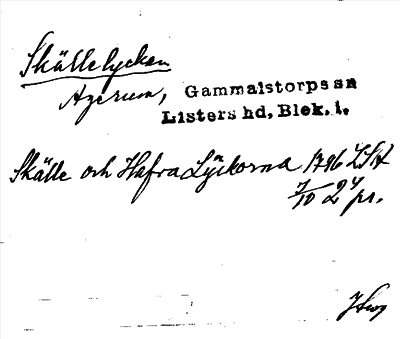 Skällelycken
Agerum, Gammalstorps sn
Listers hd, Blek. l.
Skälle och Hafra Lyckorna 1796 LSA
7/10 24 pr.